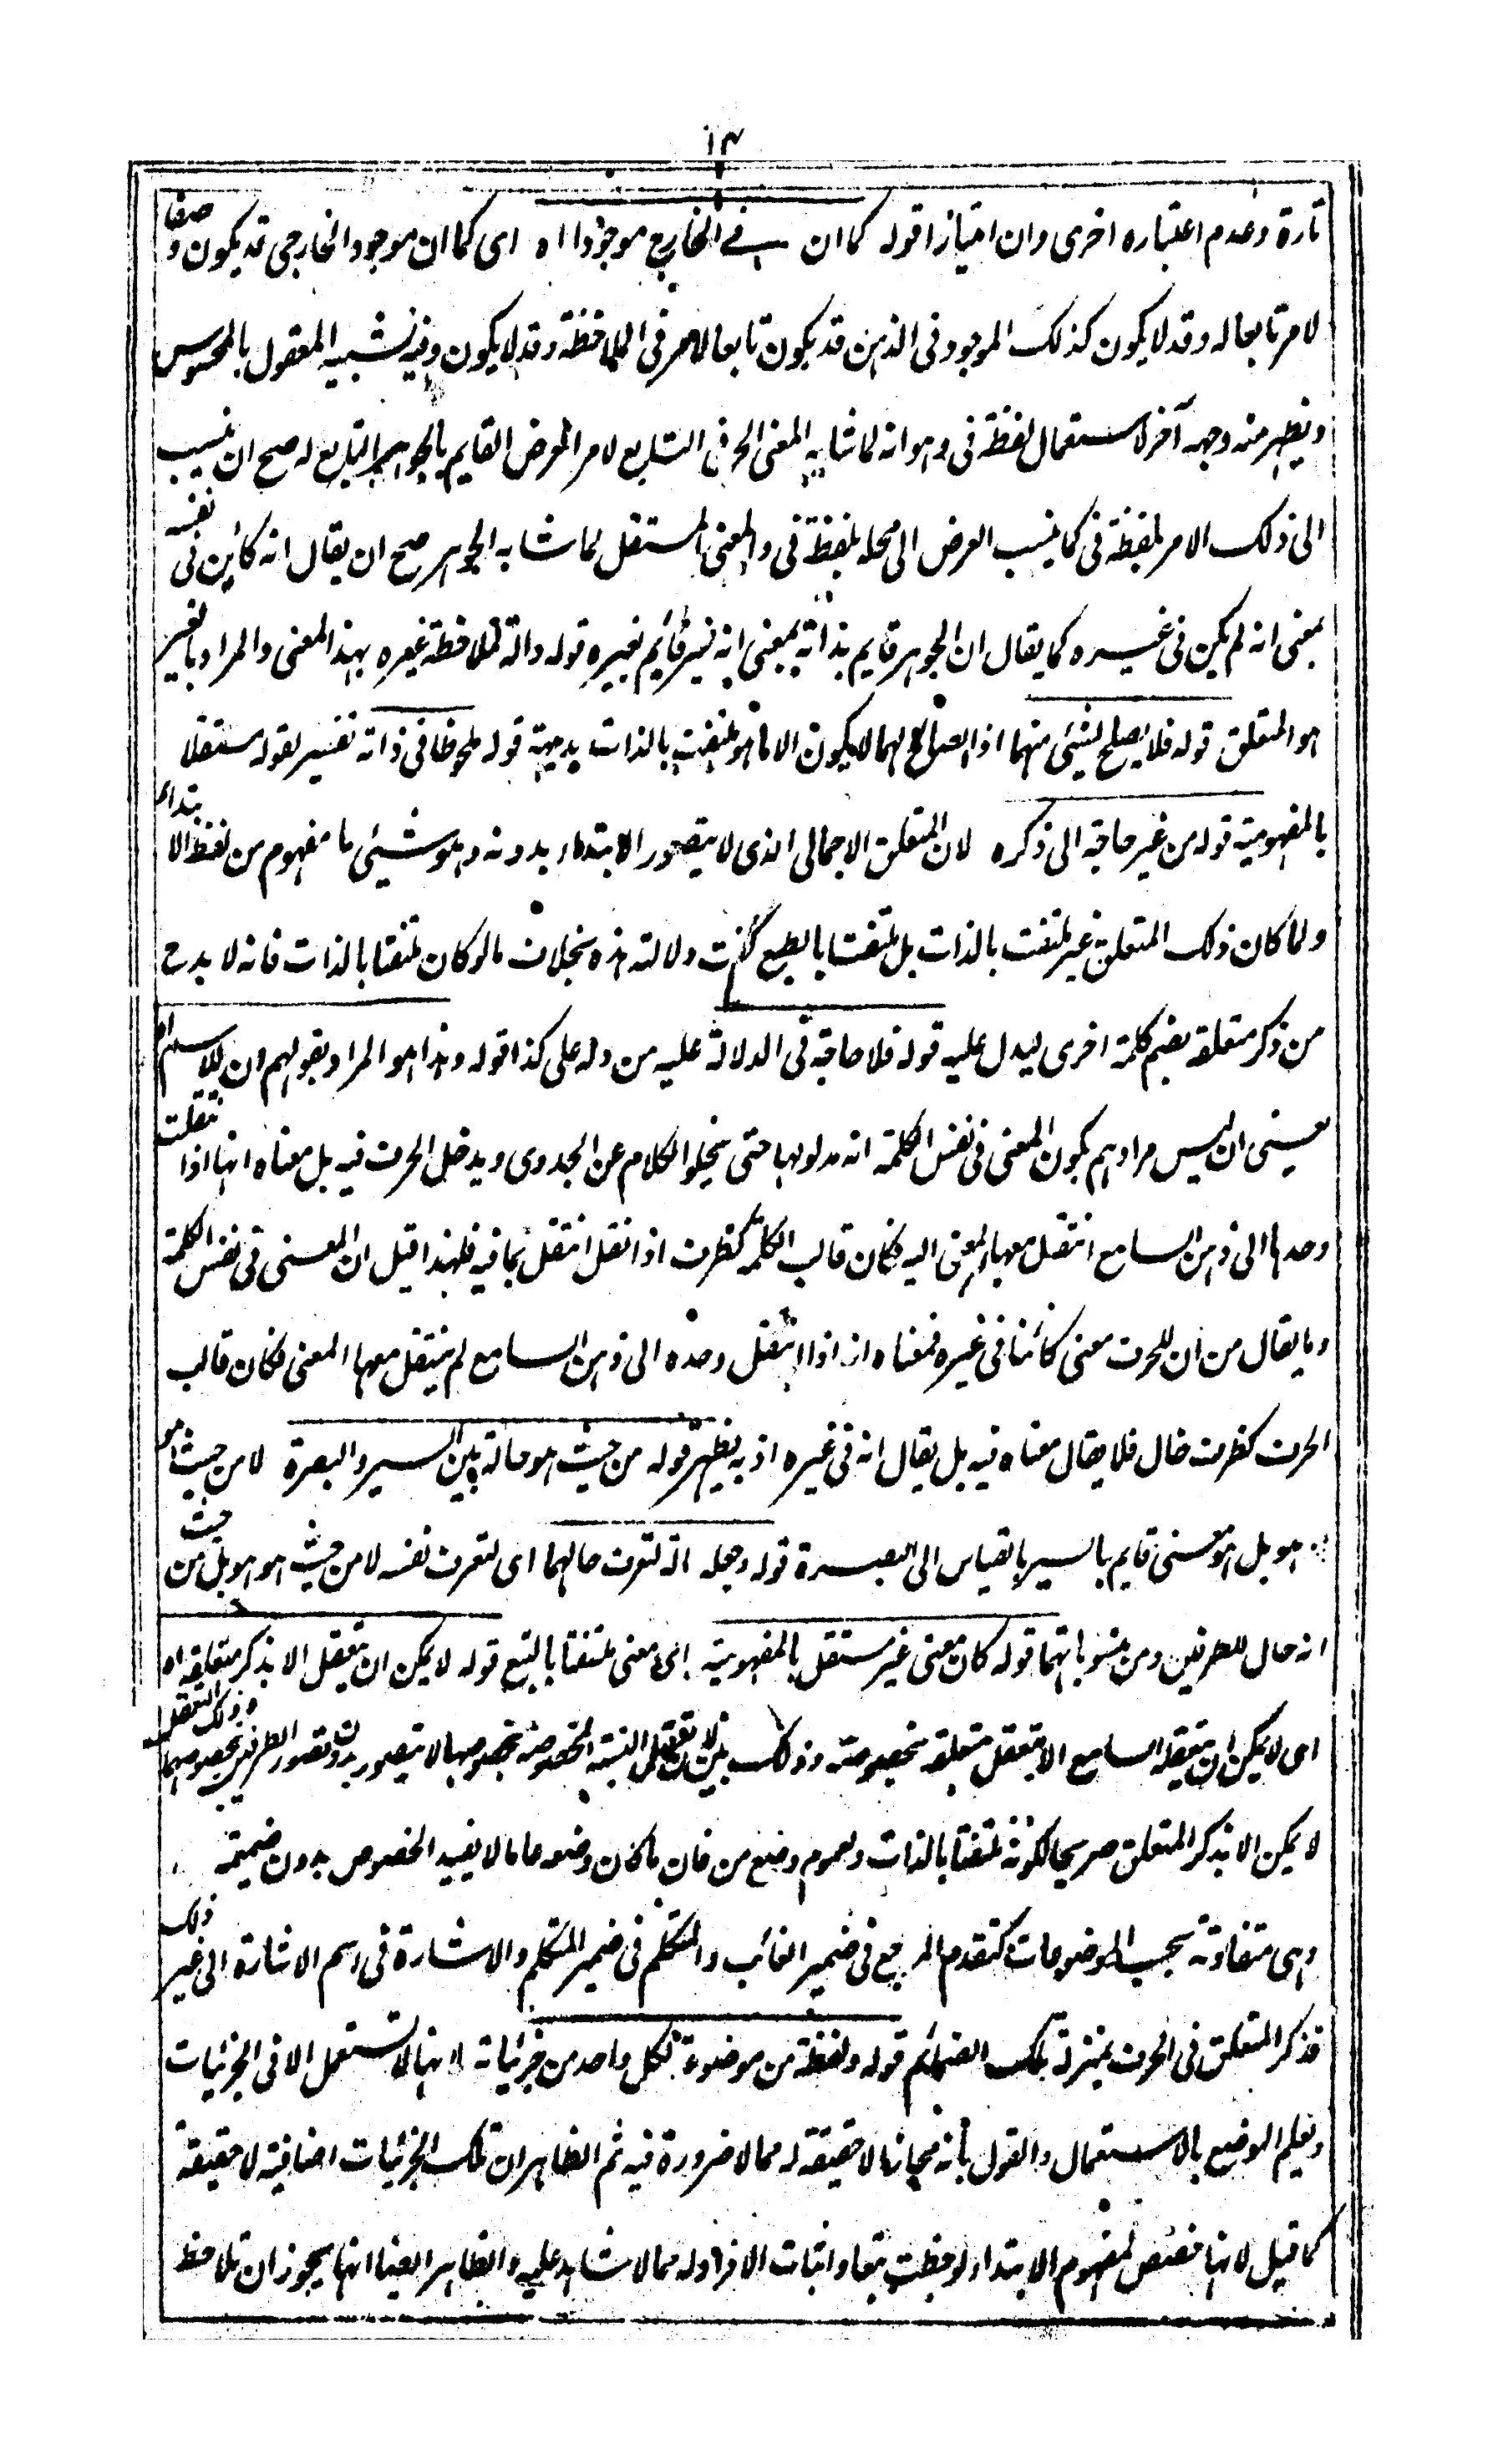 ١٣
تارة وعدم اعتباره اخرى وان امتياز اقوله كما ان في الخارج موجودا اه اى كما ان موجود الخارجى قد يكون وصفا
لامر تابعا له وقد لا يكون كذلك الموجود فى الذهن قد يكون تابعا لامر فى الملاحظة وقد لا يكون وفيه تشبيه المعقول بالمحسوس
ويظهر منه وجه آخر لاستعمال لفظة فى وهو انه لما شابه المعنى الحرفى التابع لامر العرض القايم بالجوهر التابع له صح ان ينسب
الى ذلك الامر بلفظة فى كما ينسب العرض الى محله بلفظة فى والمعنى المستقل لما شابه الجوهر صح ان يقال انه كاين فى نفسه
بمعنى انه لم يكن فى غيره كما يقال ان الجوهر قايم بذاته بمعنى انه غير قائم بغيره قوله والة لملاحظة غيره بهذا المعنى والمراد بالغير
هو المتعلق قوله فلا يصلح لشئى منهما اذ الصالح لهما لا يكون الا ما هو ملتفت بالذات بديهة قوله ملحوظا فى ذاته تفسير لقوله مستقلا
بالمفهومية قوله من غير حاجة الى ذكره لان المتعلق الاجمالى الذى لا يتصور الابتداء بدونه وهو شيئى ما مفهوم من لفظ الابتداء
ولما كان ذلك المتعلق غير ملتفت بالذات بل ملتفتا بالطبع كفت دلالته هذه بخلاف ما لو كان ملتفتا بالذات فانه لا بد ح
من ذكر متعلقه بضم كلمة اخرى ليدل عليه قوله فلا حاجة فى الدلالة عليه من دله على كذا قوله وهذا هو المراد بقولهم ان للاسم اه
يعنى ان ليس مرادهم بكون المعنى فى نفس الكلمة انه مدلولها حتى يخلو الكلام عن الجدوى ويدخل الحرف فيه بل معناه انها اذا نقلت
وحدها الى ذهن السامع انتقل معها المعنى اليه فكان قالب الكلمة كظرف اذا نقل انتقل بما فيه فلهذا قيل ان المعنى فى نفس الكلمة
وما يقال من ان للحرف معنى كائنا فى غيره فمعناه انه اذا انتقل وحده الى ذهن السامع لم ينتقل معها المعنى فكان قالب
الحرف كظرف خال فلا يقال معناه فيه بل يقال انه فى غيره اذ به يظهر قوله من حيث هو حالة بين السير والبصرة لا من حيث هو
هو بل هو معنى قايم بالسير بالقياس الى البصرة قوله وجعله الة لتعرف حالهما اى لتعرف نفسه لا من حيث هو هو بل من حيث
انه حال للطرفين ومن منسوباتهما قوله كان معنى غير مستقل بالمفهومية اى معنى ملتفتا بالتبع قوله لا يمكن ان يتعقل الا بذكر متعلقه اه
اى لا يمكن ان يتعقله السامع الا بتعقل متعلقه بخصوصه وذلك لان تعقل النسبة المخصوصة بخصوصها لا يتصور بدون تصور الطرفين بخصوصهما وذلك التعقل
لا يمكن الا بذكر المتعلق صريحا لكونه ملتفتا بالذات ولعموم وضع من فان ما كان وضعه عاما لا يفيد الخصوص بدون ضميمة
وهى متفاوتة بحسب الموضوعات كتقدم المرجع فى ضمير الغائب والتكلم فى ضمير المتكلم والاشارة فى اسم الاشارة الى غير ذلك
فذكر المتعلق فى الحرف بمنزلة تلك الضمائم قوله ولفظة من موضوعة لكل واحد من جزئياته لانها لا تستعمل الا فى الجزئيات
ويعلم الوضع بالاستعمال والقول بانه مجاز لا حقيقة له مما لا ضرورة فيه ثم الظاهر ان تلك الجزئيات اضافية لا حقيقة
كما قيل لانها حصص لمفهوم الابتداء لوحظت تبعا واثبات الافراد له مما لا شاهد عليه والظاهر ايضا انها يجوز ان تلاحظ